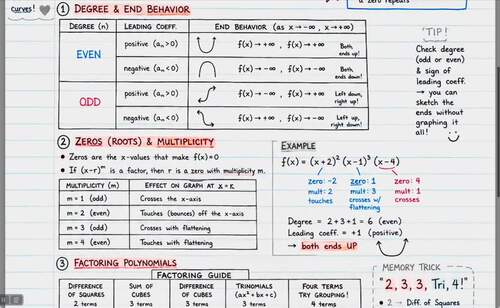 a zero repeats
curves!
① DEGREE & END BEHAVIOR
DEGREE (n) LEADING COEFF. END BEHAVIOR (as x→-∞, x→+∞)
EVEN
positive (aₙ>0) f(x)→+∞, f(x)→+∞ Both ends up!
negative (aₙ<0) f(x)→-∞, f(x)→-∞ Both, ends down!
ODD
positive (aₙ>0) f(x)→-∞, f(x)→+∞ Left down, right up!
negative (aₙ<0) f(x)→+∞, f(x)→-∞ Left up, right down!
'TIP!
Check degree
(odd or even)
& sign of
leading coeff.
→ you can
sketch the
ends without
graphing it
all!
② ZEROS (ROOTS) & MULTIPLICITY
• Zeros are the x-values that make f(x)=0
• If (x-r)ᵐ is a factor, then r is a zero with multiplicity m.
MULTIPLICITY (m) EFFECT ON GRAPH at x=r
m = 1 (odd) Crosses the x-axis
m = 2 (even) Touches (bounces) off the x-axis
m = 3 (odd) Crosses with flattening
m = 4 (even) Touches with flattening
EXAMPLE
f(x) = (x+2)² (x-1)³ (x-4)
zero: -2 zero: 1 zero: 4
mult: 2 mult: 3 mult: 1
touches crosses w/ crosses
flattening
Degree = 2+3+1 = 6 (even)
Leading coeff. = +1 (positive)
→ both ends UP
③ FACTORING POLYNOMIALS
FACTORING GUIDE
DIFFERENCE OF SQUARES SUM OF CUBES DIFFERENCE OF CUBES TRINOMIALS (ax²+bx+c) FOUR TERMS TRY GROUPING!
2 terms 3 terms 3 terms 4 terms
MEMORY TRICK
"2, 3, 3, Tri, 4!"
• 2 → Diff. of Squares